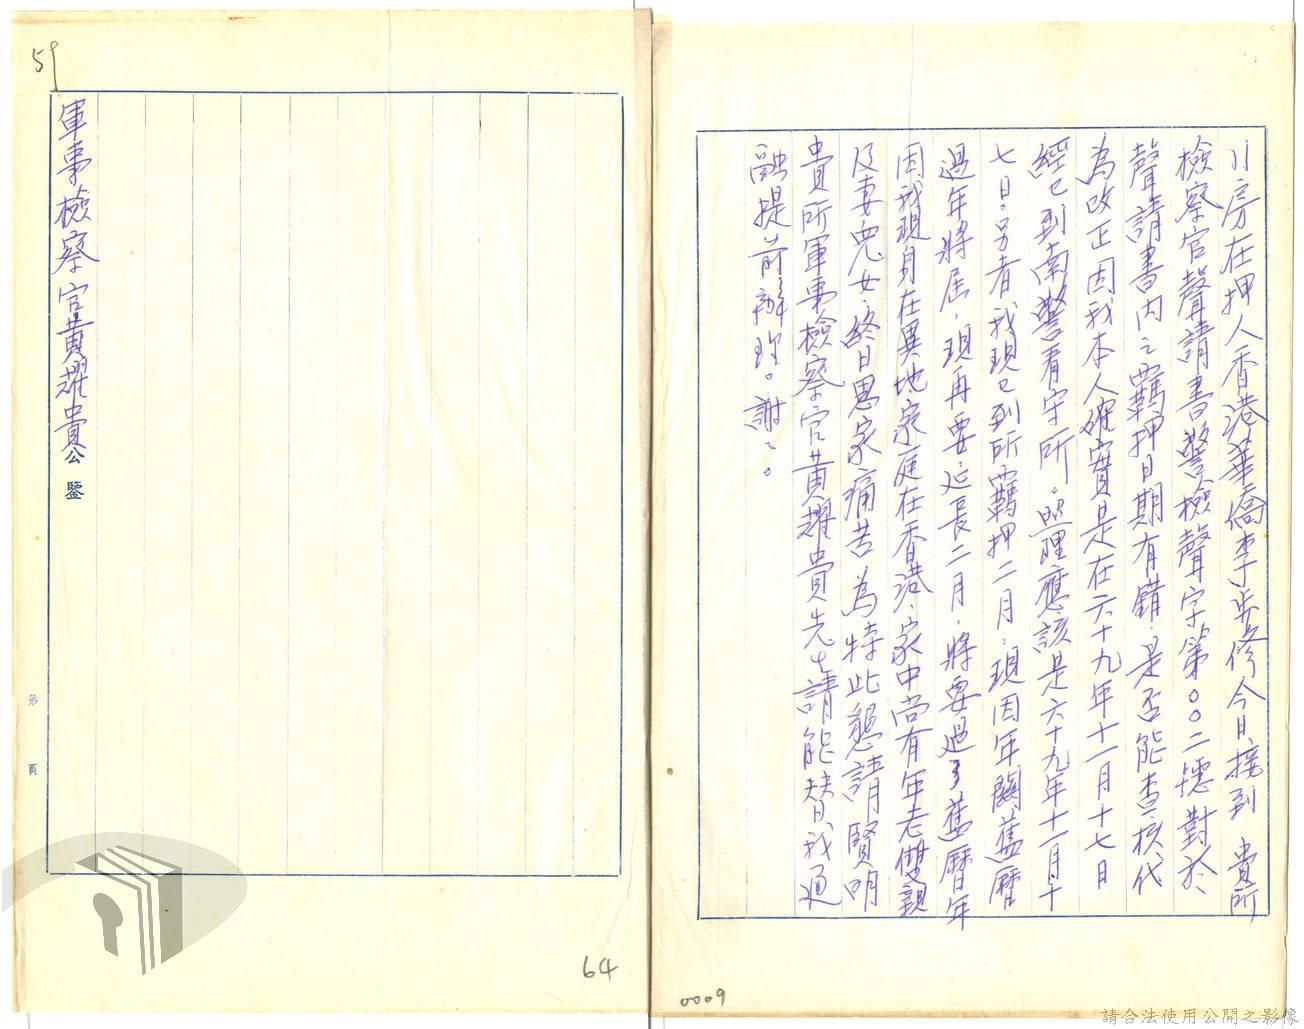 11房在押人香港華僑李亞修今日接到 貴所
檢察官聲請書警檢聲字第〇〇二號對於、
聲請書內之羈押日期有錯．是否能查核代
為改正因我本人確實是在六十九年十一月十七日
經已到南警看守所。照理應該是六十九年十一月十
七日．另者我現已到所羈押二月．現因年關舊曆
過年將屆．現再要延長二月．將要過了舊曆年
因我現身在異地家庭在香港．家中尚有年老雙親
及妻兒女．終日思家痛苦為特此懇請賢明
貴所軍事檢察官黃耀貴先生請能替我通
融提前辦理。謝々。
軍事檢察官黃耀貴公鑒
59
第 頁
64
0009
請合法使用公開之影像